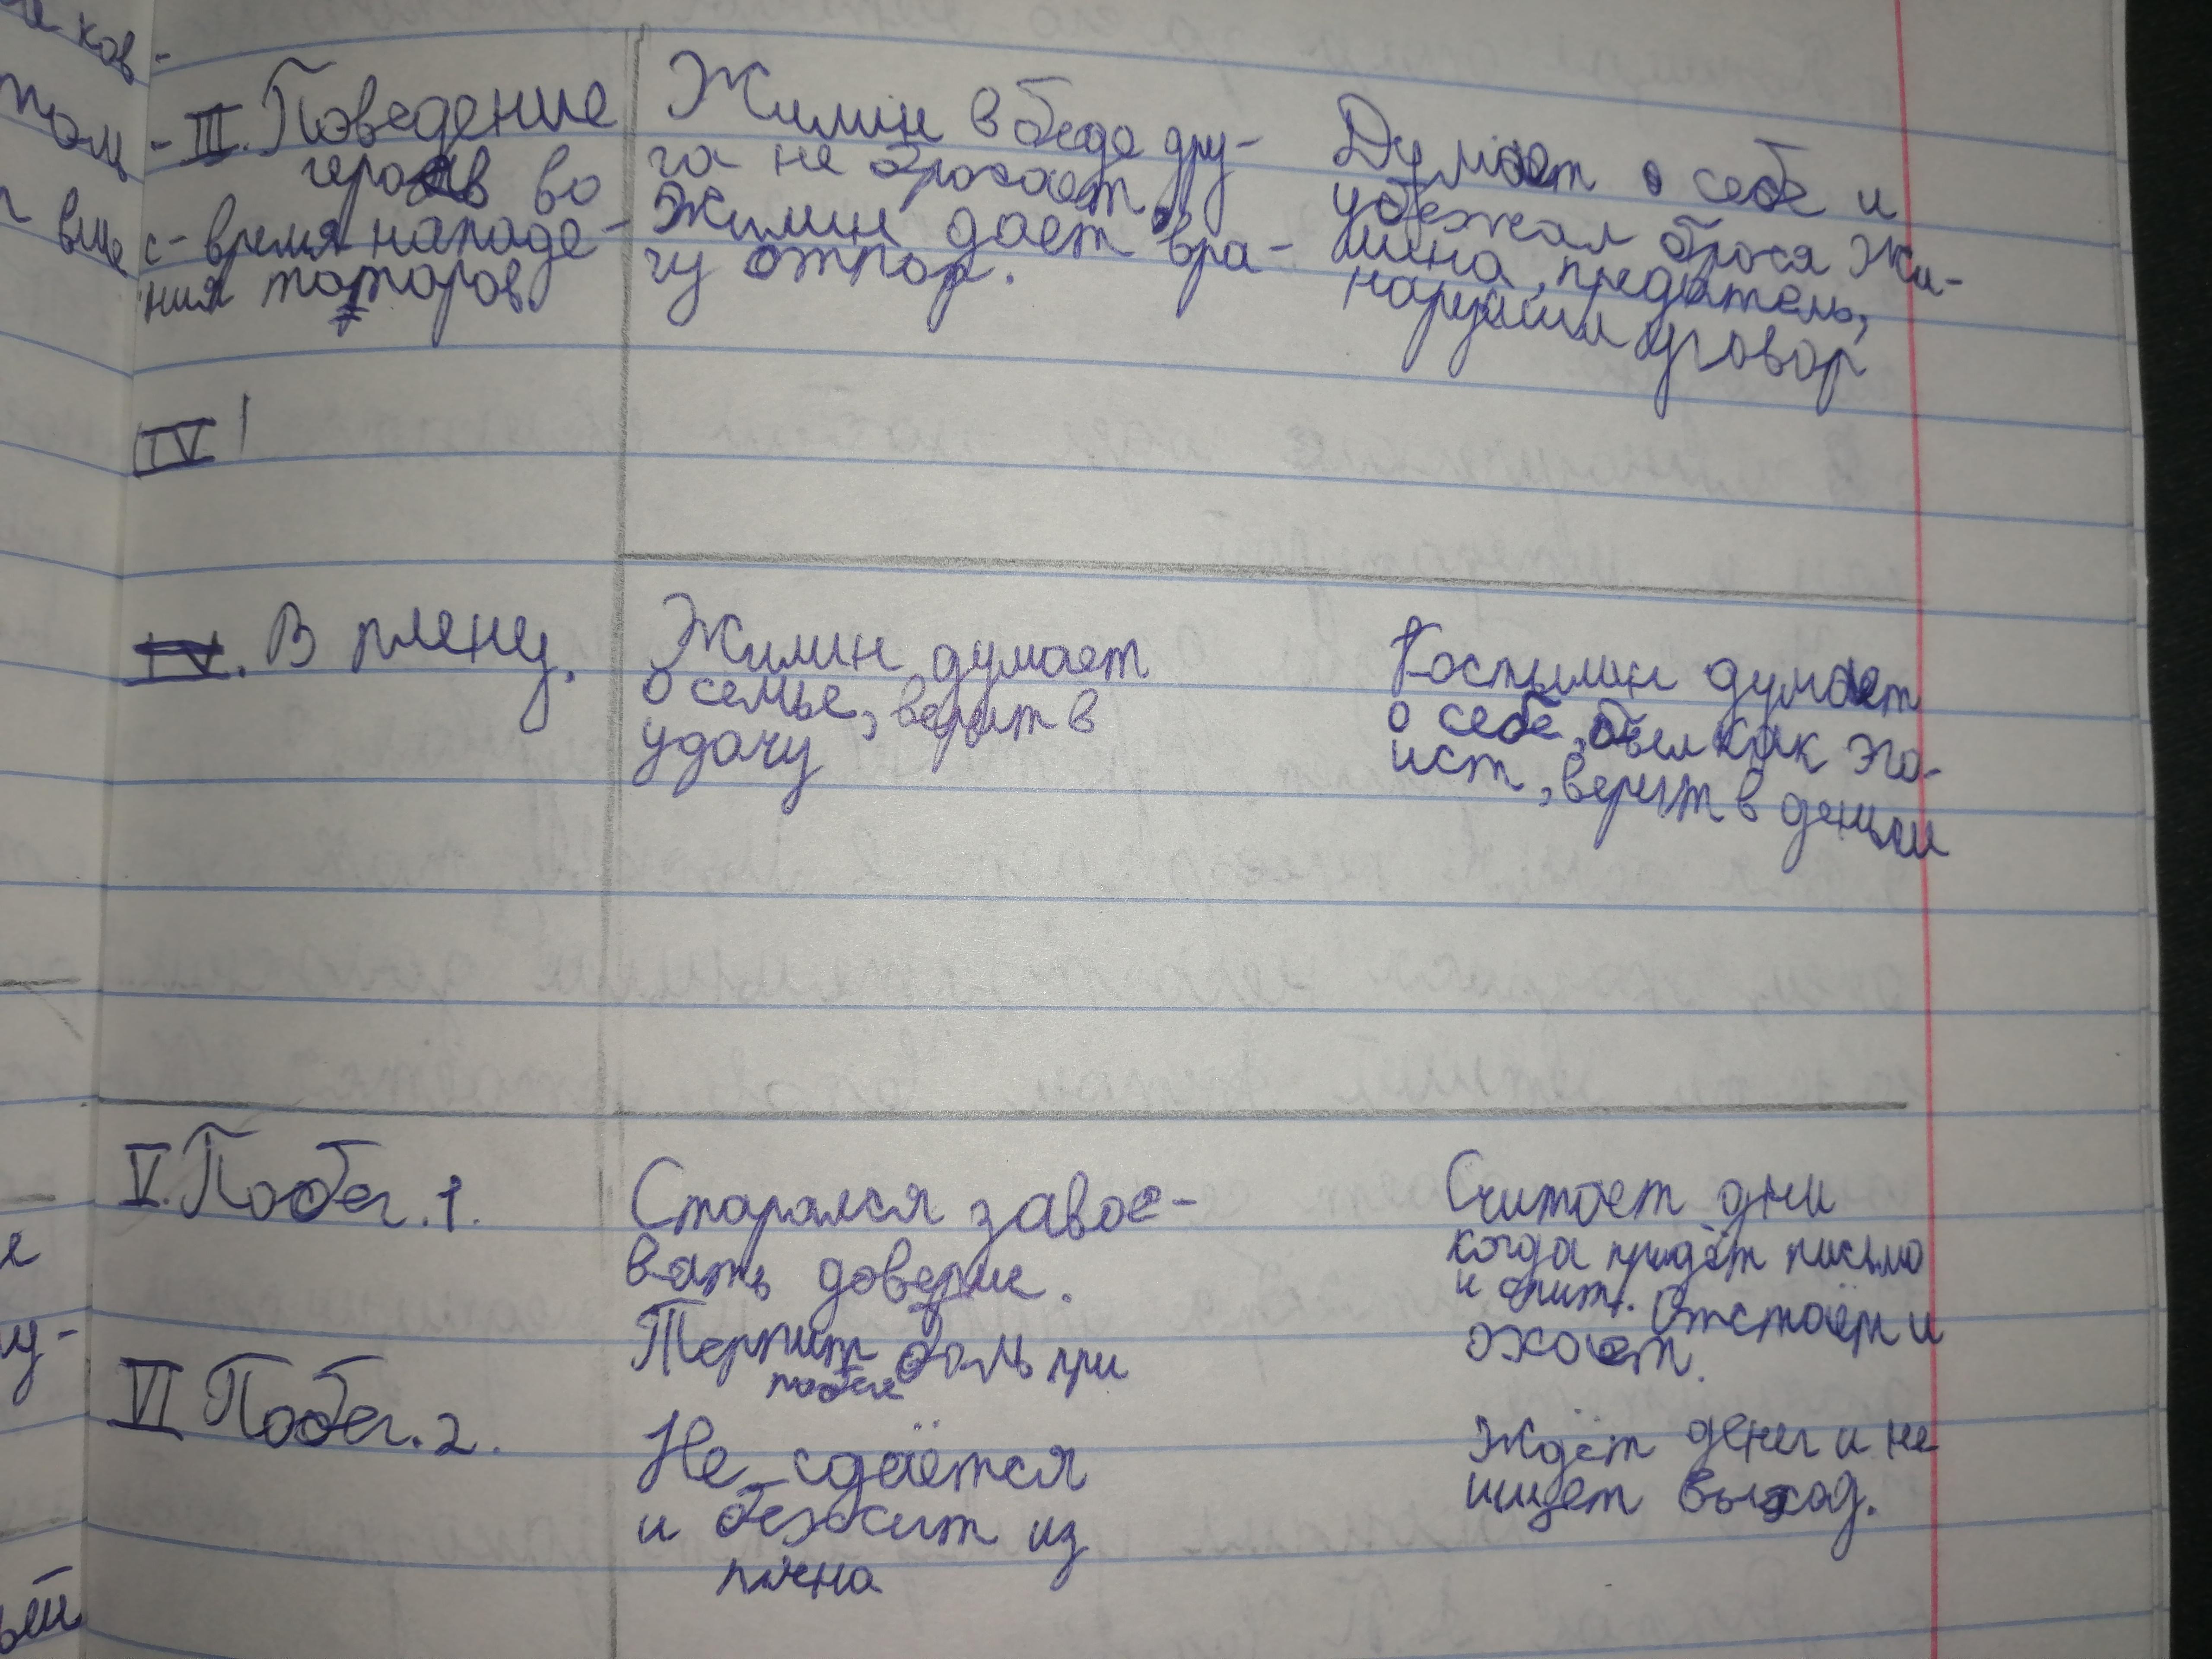 ков-
III. Поведение
героев во
время нападе-
ния татаров
Жилин в беде дру-
га не бросает,
Жилин дает вра-
гу отпор.
Думает о себе и
убежал брося Жи-
лина, предатель,
нарушил уговор
IV
IV. В плену.
Жилин думает
о семье, верит в
удачу
Костылин думает
о себе, был как эго-
ист, верит в деньги
V. Побег. 1.
Старался завое-
вать доверие.
Терпит боль при
побеге
Считает дни
когда придёт письмо
и спит. Отстаёт и
охает.
VI Побег. 2.
Не сдаётся
и бежит из
плена
Ждёт денег и не
ищет выход.
е
у-
ый